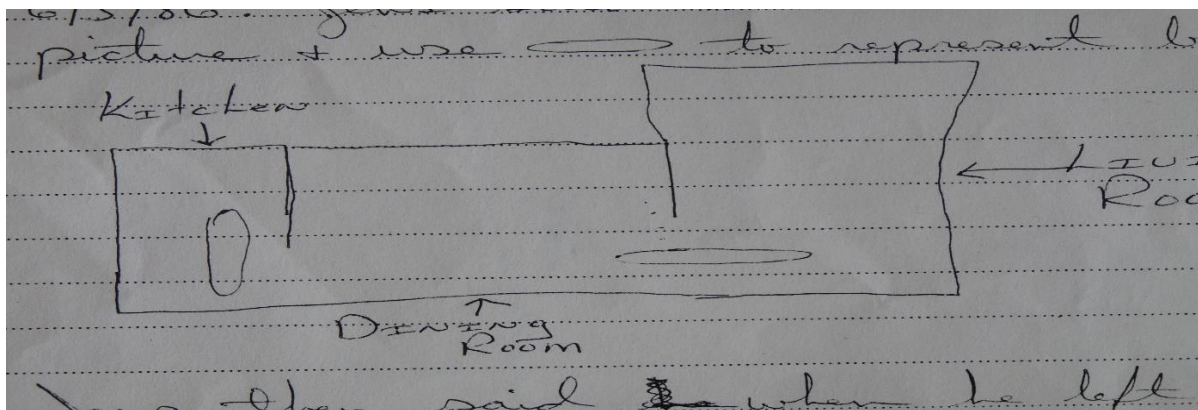 6/3/06.
picture + use to represent
Kitchen
Living
Room
Dining
Room
then said when he left